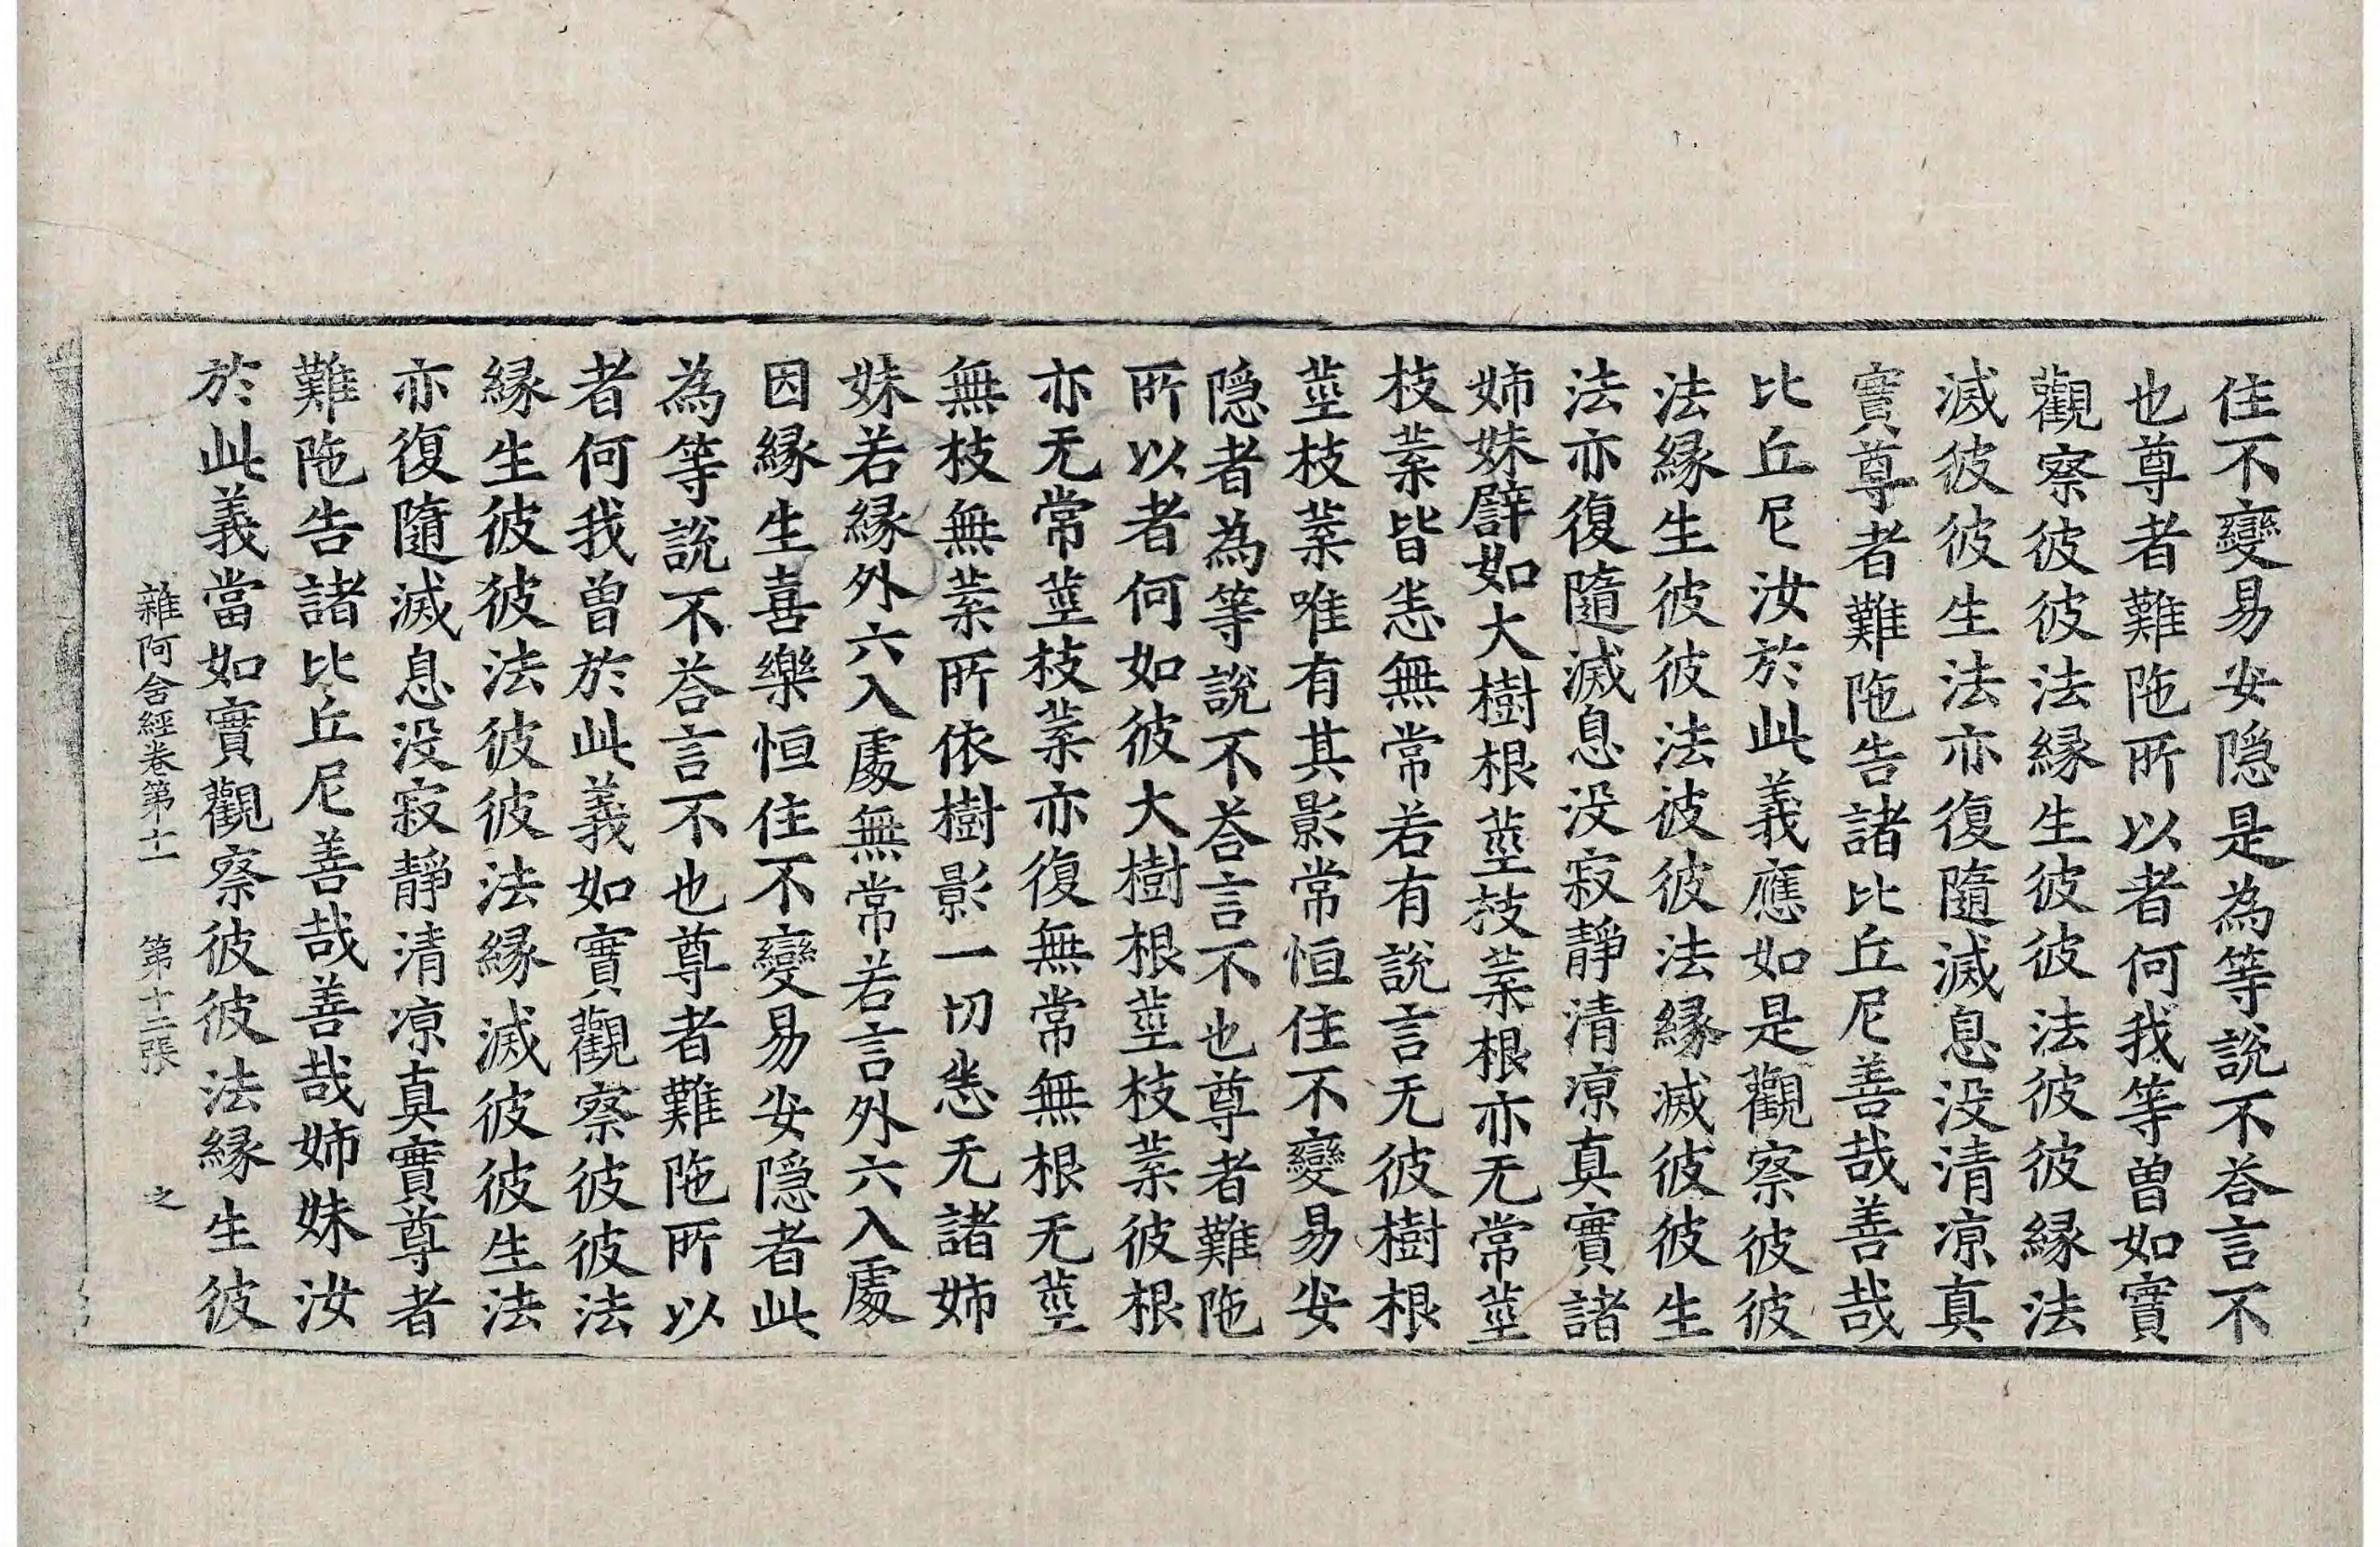 住不變易安隱是為等說不荅言不
也尊者難陁所以者何我等曾如實
觀察彼彼法緣生彼彼法彼彼緣法
滅彼彼生法亦復隨滅息没清涼真
實尊者難陁告諸比丘尼善哉善哉
比丘尼汝於此義應如是觀察彼彼
法緣生彼彼法彼彼法緣滅彼彼生
法亦復隨滅息没寂靜清涼真實諸
姉妹譬如大樹根莖枝葉根亦无常莖
枝葉皆悉無常若有說言无彼樹根
莖枝葉唯有其影常恒住不變易安
隱者為等說不荅言不也尊者難陁
所以者何如彼大樹根莖枝葉彼根
亦无常莖枝葉亦復無常無根无莖
無枝無葉所依樹影一切悉无諸姉
妹若緣外六入處無常若言外六入處
因緣生喜樂恒住不變易安隱者此
為等說不荅言不也尊者難陁所以
者何我曾於此義如實觀察彼彼法
緣生彼彼法彼彼法緣滅彼彼生法
亦復隨滅息没寂靜清涼真實尊者
難陁告諸比丘尼善哉善哉姉妹汝
於此義當如實觀察彼彼法緣生彼
雜阿含經卷第十一 第十二張 之